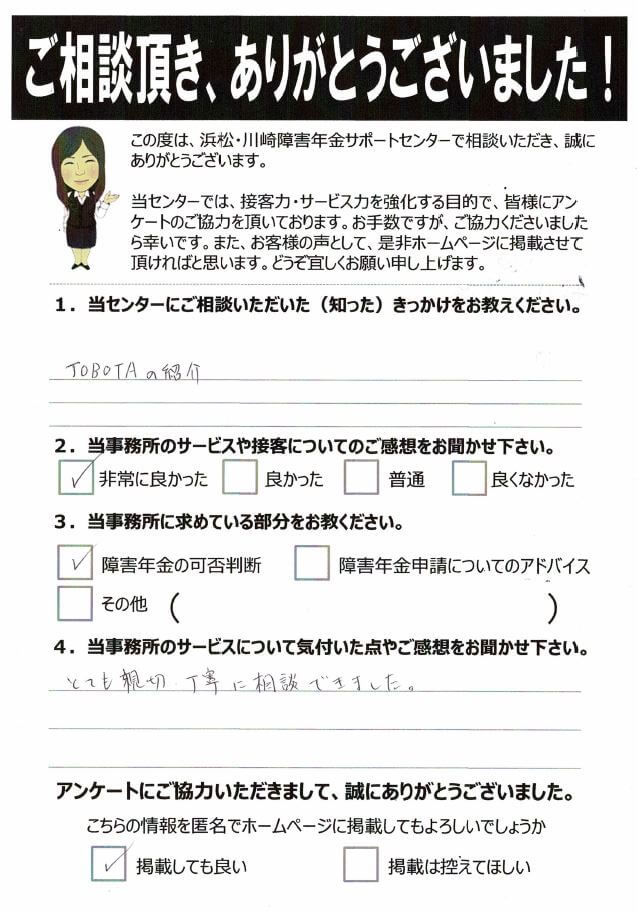 ご相談頂き、ありがとうございました！
この度は、浜松・川崎障害年金サポートセンターで相談いただき、誠に
ありがとうございます。
当センターでは、接客力・サービス力を強化する目的で、皆様にアン
ケートのご協力を頂いております。お手数ですが、ご協力くださいました
ら幸いです。また、お客様の声として、是非ホームページに掲載させて
頂ければと思います。どうぞ宜しくお願い申し上げます。
１．当センターにご相談いただいた（知った）きっかけをお教えください。
JOBOTAの紹介
２．当事務所のサービスや接客についてのご感想をお聞かせ下さい。
✓ 非常に良かった 良かった 普通 良くなかった
３．当事務所に求めている部分をお教ください。
✓ 障害年金の可否判断 障害年金申請についてのアドバイス
その他 （ ）
４．当事務所のサービスについて気付いた点やご感想をお聞かせ下さい。
とても親切、丁寧に相談できました。
アンケートにご協力いただきまして、誠にありがとうございました。
こちらの情報を匿名でホームページに掲載してもよろしいでしょうか
✓ 掲載しても良い 掲載は控えてほしい